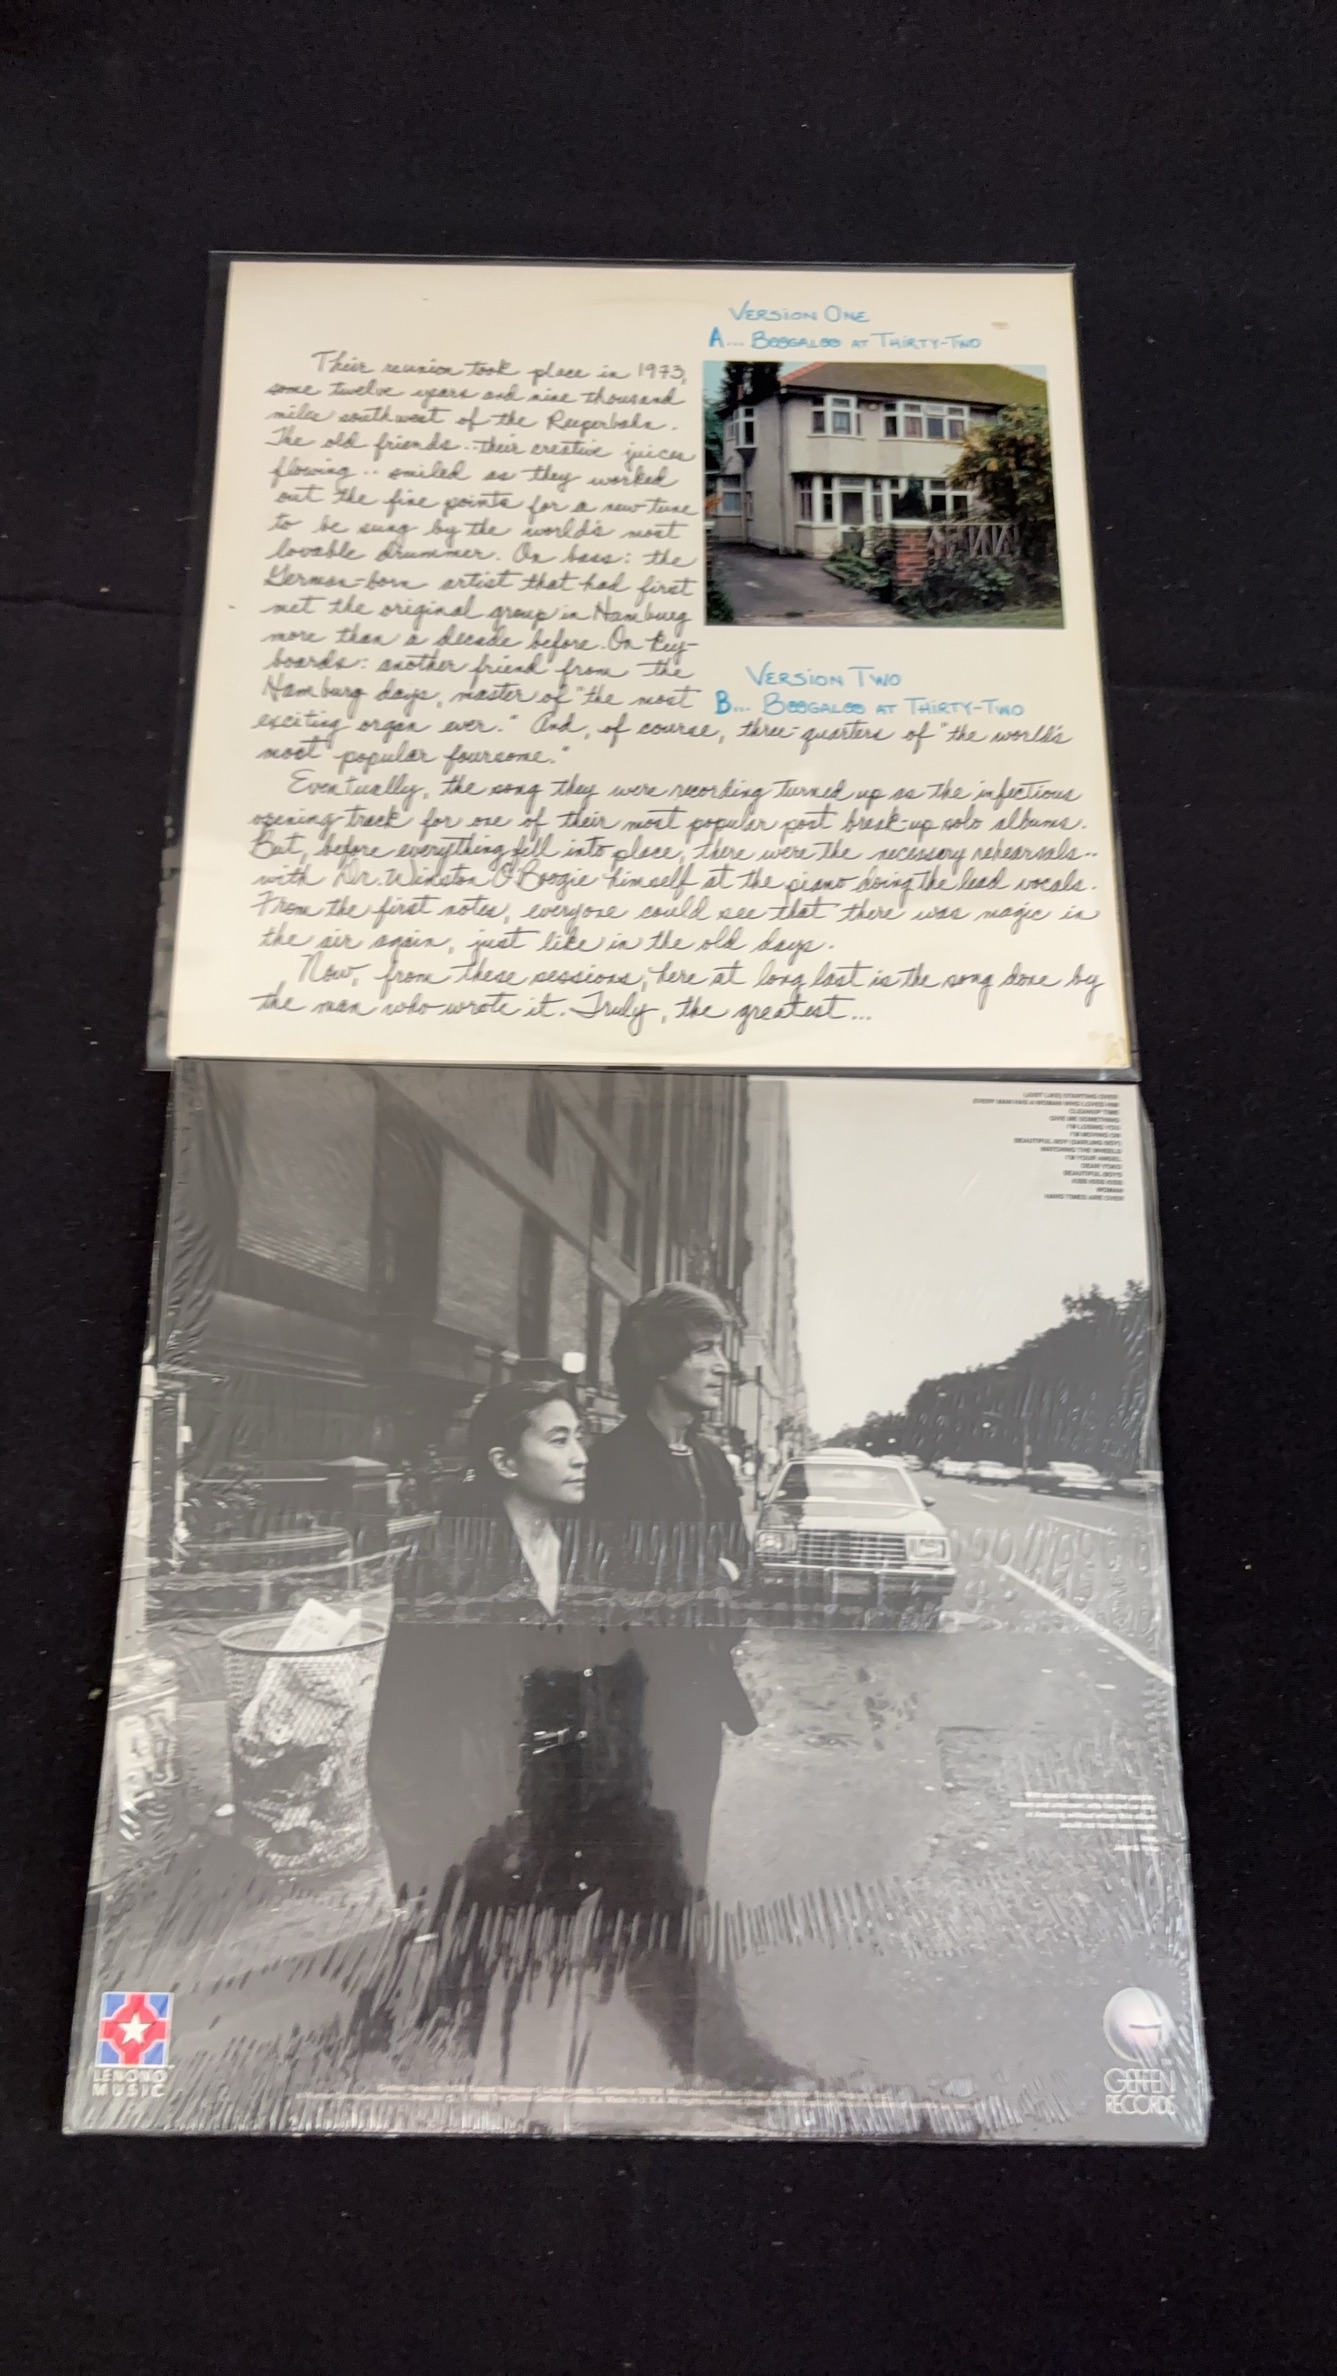 VERSION ONE
A... BOOGALOO AT THIRTY-TWO
Their reunion took place in 1973,
some twelve years and nine thousand
miles southwest of the Reeperbahn.
The old friends.. their creative juices
flowing.. smiled as they worked
out the fine points for a new tune
to be sung by the world's most
lovable drummer. On bass: the
German-born artist that had first
met the original group in Hamburg
more than a decade before. On key-
boards: another friend from the
Hamburg days, master of "the most
exciting organ ever." And, of course, three-quarters of "the world's
most popular foursome."
VERSION TWO
B... BOOGALOO AT THIRTY-TWO
Eventually, the song they were recording turned up as the infectious
opening track for one of their most popular post break-up solo albums.
But, before everything fell into place, there were the necessary rehearsals..
with Dr. Winston O'Boogie himself at the piano doing the lead vocals.
From the first notes, everyone could see that there was magic in
the air again, just like in the old days.
Now, from these sessions, here at long last is the song done by
the man who wrote it. Truly, the greatest...
(JUST LIKE) STARTING OVER
EVERY MAN HAS A WOMAN WHO LOVES HIM
CLEANUP TIME
GIVE ME SOMETHING
I'M LOSING YOU
I'M MOVING ON
BEAUTIFUL BOY (DARLING BOY)
WATCHING THE WHEELS
I'M YOUR ANGEL
DEAR YOKO
BEAUTIFUL BOYS
KISS KISS KISS
WOMAN
HARD TIMES ARE OVER
LENONO
MUSIC
GEFFEN
RECORDS